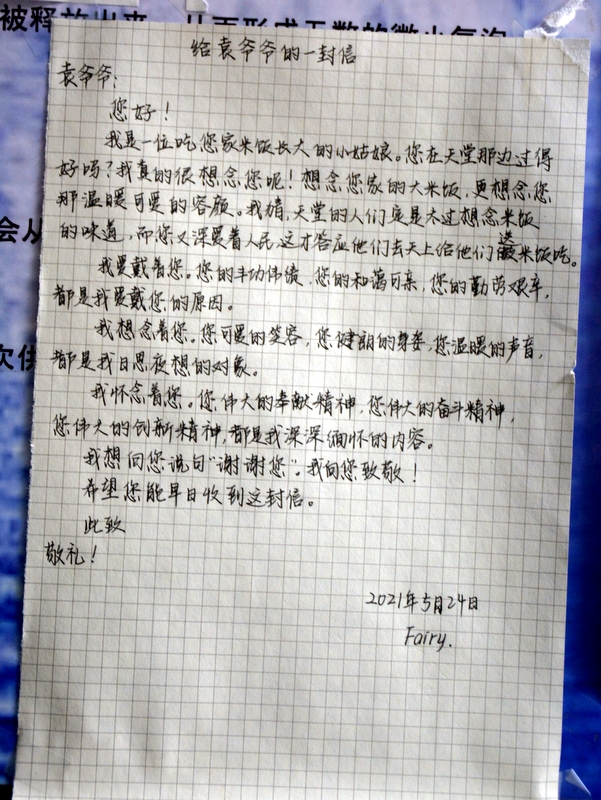 被释放出来，从而形成无数的微小气泡
给袁爷爷的一封信
袁爷爷：
您好！
我是一位吃您家米饭长大的小姑娘。您在天堂那边过得
好吗？我真的很想念您呢！想念您家的大米饭，更想念您
那温暖可爱的容颜。我猜，天堂的人们定是太过想念米饭
的味道，而您又深爱着人民，这才答应他们去天上给他们送米饭吃。
会从
我爱戴着您。您的丰功伟绩，您的和蔼可亲，您的勤劳艰辛，
都是我爱戴您的原因。
我想念着您。您可爱的笑容，您健朗的身姿，您温暖的声音，
次供
都是我日思夜想的对象。
我怀念着您。您伟大的奉献精神，您伟大的奋斗精神，
您伟大的创新精神，都是我深深缅怀的内容。
我想向您说句“谢谢您”。我向您致敬！
希望您能早日收到这封信。
此致
敬礼！
2021年5月24日
Fairy.